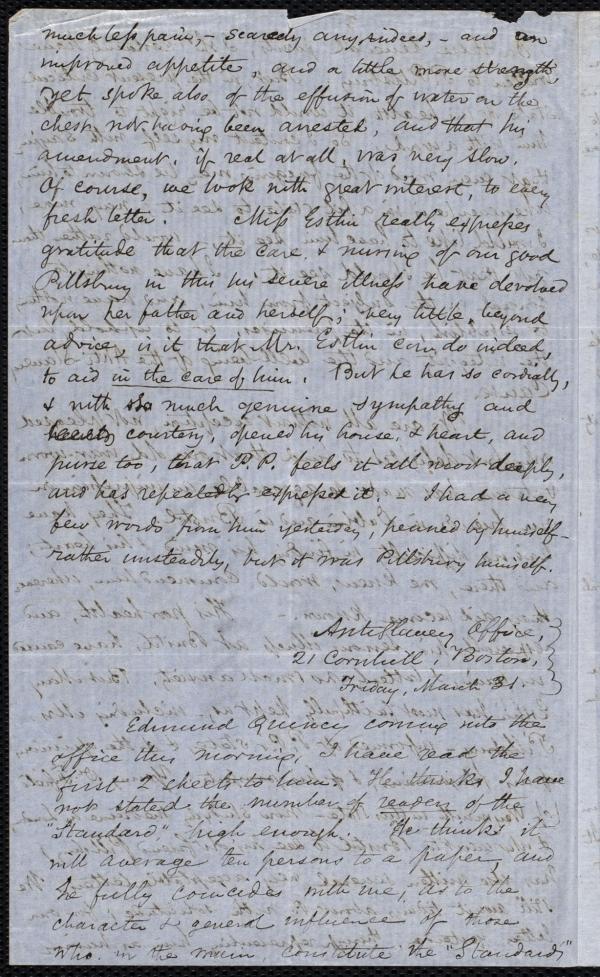 much less pain, – scarcely any, indeed, – and an
improved appetite, and a little more strength,
yet spoke also of the effusion of water on the
chest not having been arrested, and that his
amendment, if real at all, was very slow.
Of course, we look with great interest, to every
fresh letter. Miss Estlin really expresses
gratitude that the care & nursing of our good
Pillsbury in this his severe illness have devolved
upon her father and herself; very little, beyond
advice, is it that Mr. Estlin can do indeed,
to aid in the care of him. But he has so cordially,
& with so much genuine sympathy and
courtesy, opened his house, & heart, and
purse too, that P.P. feels it all most deeply,
and has repeatedly expressed it. I had a very
few words from him yesterday, penned by himself –
rather unsteadily, but it was Pillsbury himself.
Antislavery Office,
21 Cornhill, Boston,
Friday, March 31.
Edmund Quincy coming into the
office this morning, I have read the
first 2 sheets to him. He thinks I have
not stated the number of readers of the
"Standard" high enough. He thinks it
will average ten persons to a paper, and
he fully coincides with me, as to the
character & general influence of those
who, in the main, constitute the "Standard's"